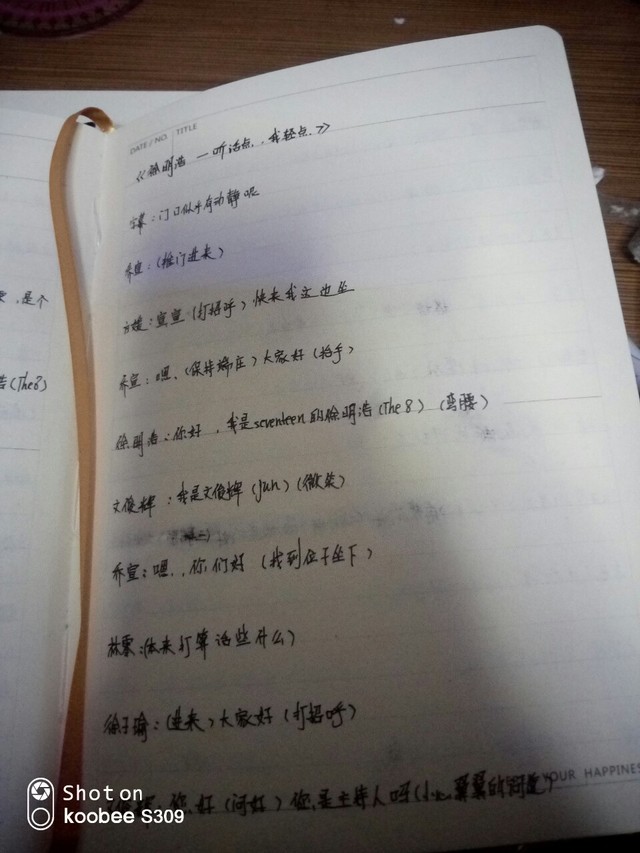 DATE / NO. TITLE
《徐明浩 一 听话点，我轻点》
字幕：门口似乎有动静呢
乔宣：（推门进来）
方媛：宣宣（打招呼）快来我这边坐
乔宣：嗯，（保持端庄）大家好（招手）
徐明浩：你好，我是seventeen的徐明浩（The8）（弯腰）
文俊辉：我是文俊辉（Jun）（微笑）
乔宣：嗯，，你们好（找到位子坐下）
林云：（本来打算话些什么）
徐子瑜：（进来）大家好（打招呼）
你好（问好）您是主持人呀（小心翼翼的问道）
，是个
浩（The8）
YOUR HAPPINES
Shot on
koobee S309